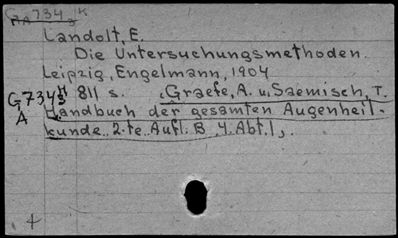 734 K
Landolt, E.
Die Untersuchungsmethoden.
Leipzig, Engelmann, 1904
G734H 811 s. (Graefe, A. u. Saemisch, T.
A Handbuch der gesamten Augenheil-
kunde. 2.te. Aufl. B. 4. Abt. 1).
4